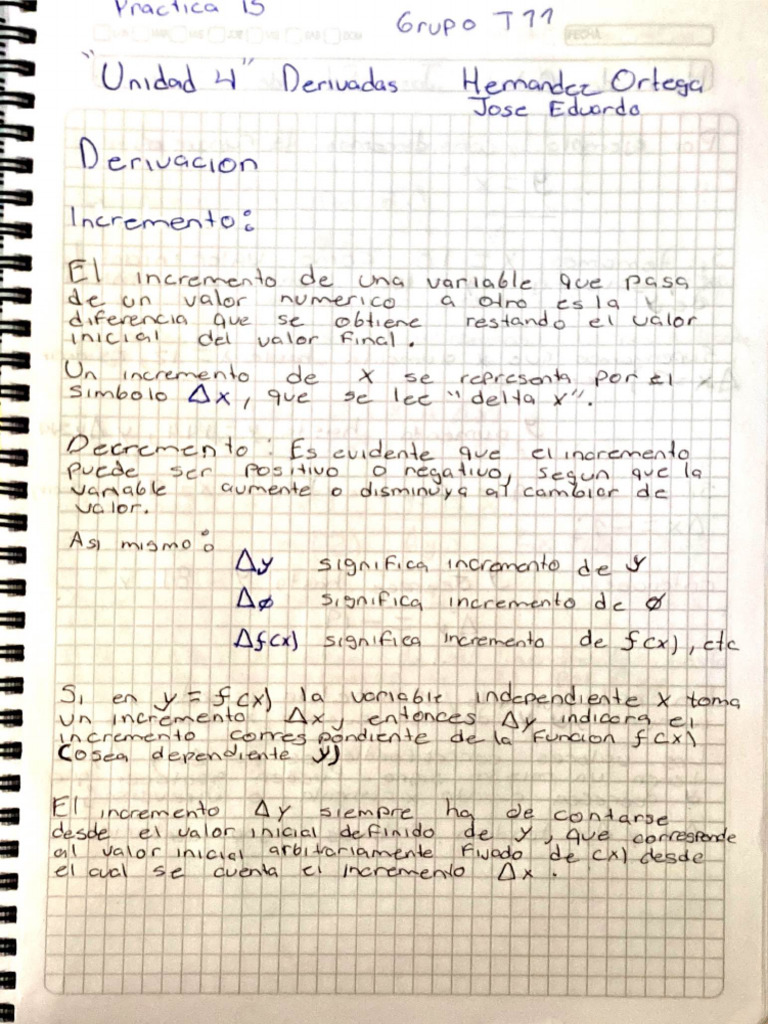 Practica 15
Grupo T11
FECHA:
"Unidad 4" Derivadas Hernandez Ortega
Jose Eduardo
Derivacion
Incremento:
El incremento de una variable que pasa
de un valor numerico a otro es la
diferencia que se obtiene restando el valor
inicial del valor final.
Un incremento de x se representa por el
simbolo Δx, que se lee "delta x".
Decremento: Es evidente que el incremento
puede ser positivo o negativo, segun que la
variable aumente o disminuya al cambiar de
valor.
Asi mismo:
Δy significa incremento de y
Δø significa incremento de ø
Δf(x) significa incremento de f(x), etc
Si en y = f(x) la variable independiente x toma
un incremento Δx, entonces Δy indicara el
incremento correspondiente de la funcion f(x)
(osea dependiente y)
El incremento Δy siempre ha de contarse
desde el valor inicial definido de y, que corresponde
al valor inicial arbitrariamente fijado de (x) desde
el cual se cuenta el incremento Δx.